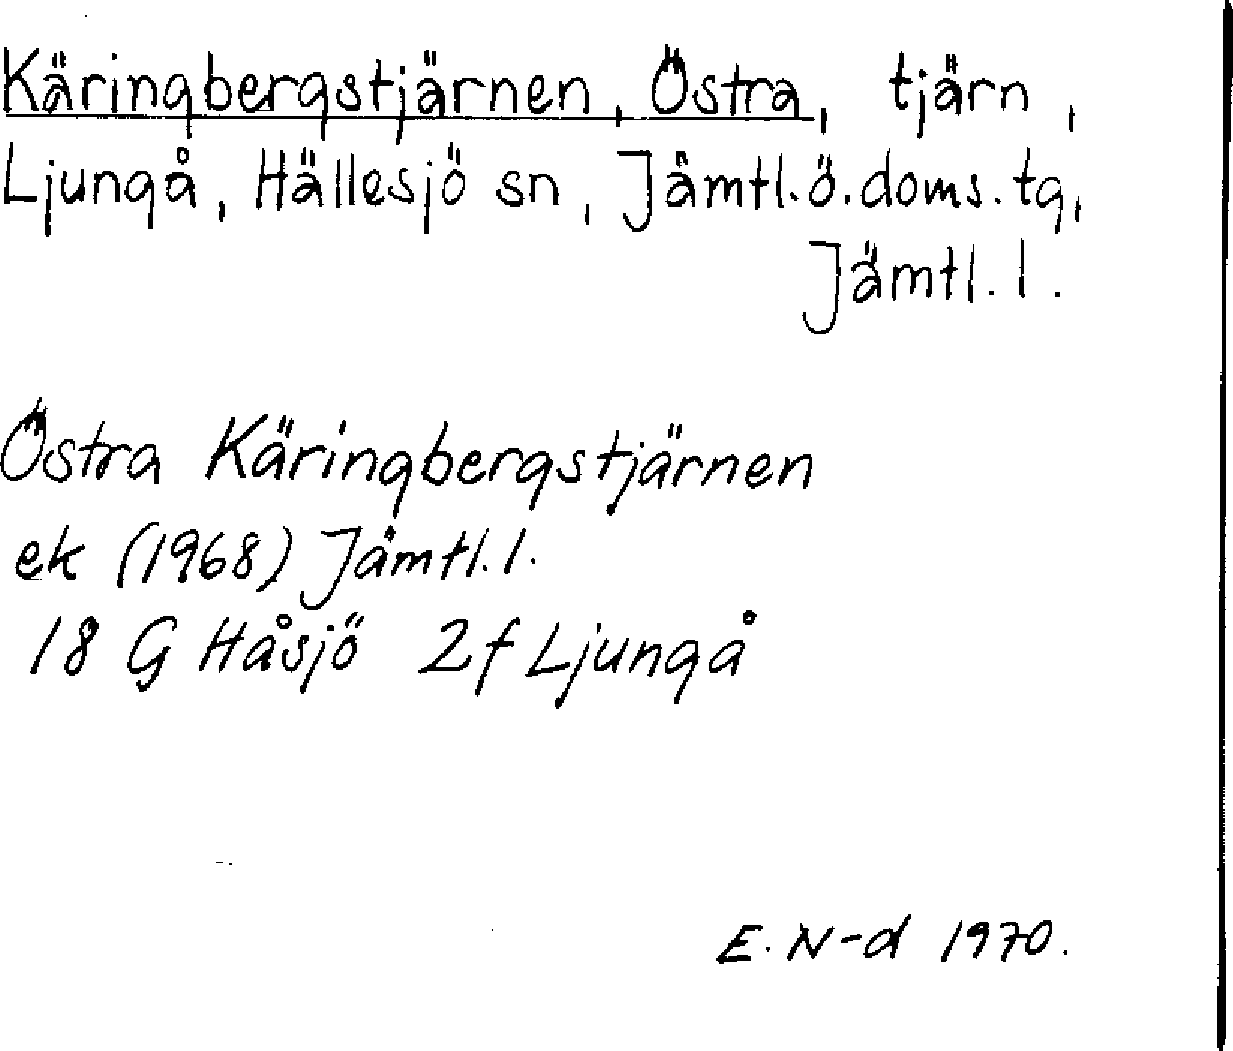 Käringbergstjärnen, Östra, tjärn,
Ljungå, Hällesjö sn, Jämtl.ö.doms.tg,
Jämtl. l.
Östra Käringbergstjärnen
ek (1968) Jämtl. l.
18 G Håsjö 2f Ljungå
E. N-d 1970.